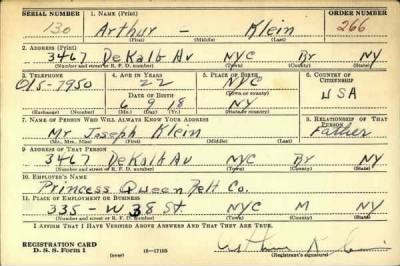 SERIAL NUMBER 1. NAME (Print) ORDER NUMBER
130 Arthur - Klein 266
(First) (Middle) (Last)
2. ADDRESS (Print)
3467 DeKalb Av NYC Br NY
(Number and street or R. F. D. number) (Town) (County) (State)
3. TELEPHONE 4. AGE IN YEARS 5. PLACE OF BIRTH 6. COUNTRY OF CITIZENSHIP
22 NYC
015-7950 DATE OF BIRTH (Town or county) USA
6 9 18 NY
(Exchange) (Number) (Mo.) (Day) (Yr.) (State or country)
7. NAME OF PERSON WHO WILL ALWAYS KNOW YOUR ADDRESS 8. RELATIONSHIP OF THAT PERSON
Mr Joseph Klein Father
(Mr., Mrs., Miss) (First) (Middle) (Last)
9. ADDRESS OF THAT PERSON
3467 DeKalb Av NYC Br NY
(Number and street or R. F. D. number) (Town) (County) (State)
10. EMPLOYER'S NAME
Princess Queen Felt Co.
11. PLACE OF EMPLOYMENT OR BUSINESS
335 - W 38 St. NYC M NY
(Number and street or R. F. D. number) (Town) (County) (State)
I AFFIRM THAT I HAVE VERIFIED ABOVE ANSWERS AND THAT THEY ARE TRUE.
REGISTRATION CARD
D. S. S. Form 1 (over) 16-17105 Arthur Klein
(Registrant's signature)